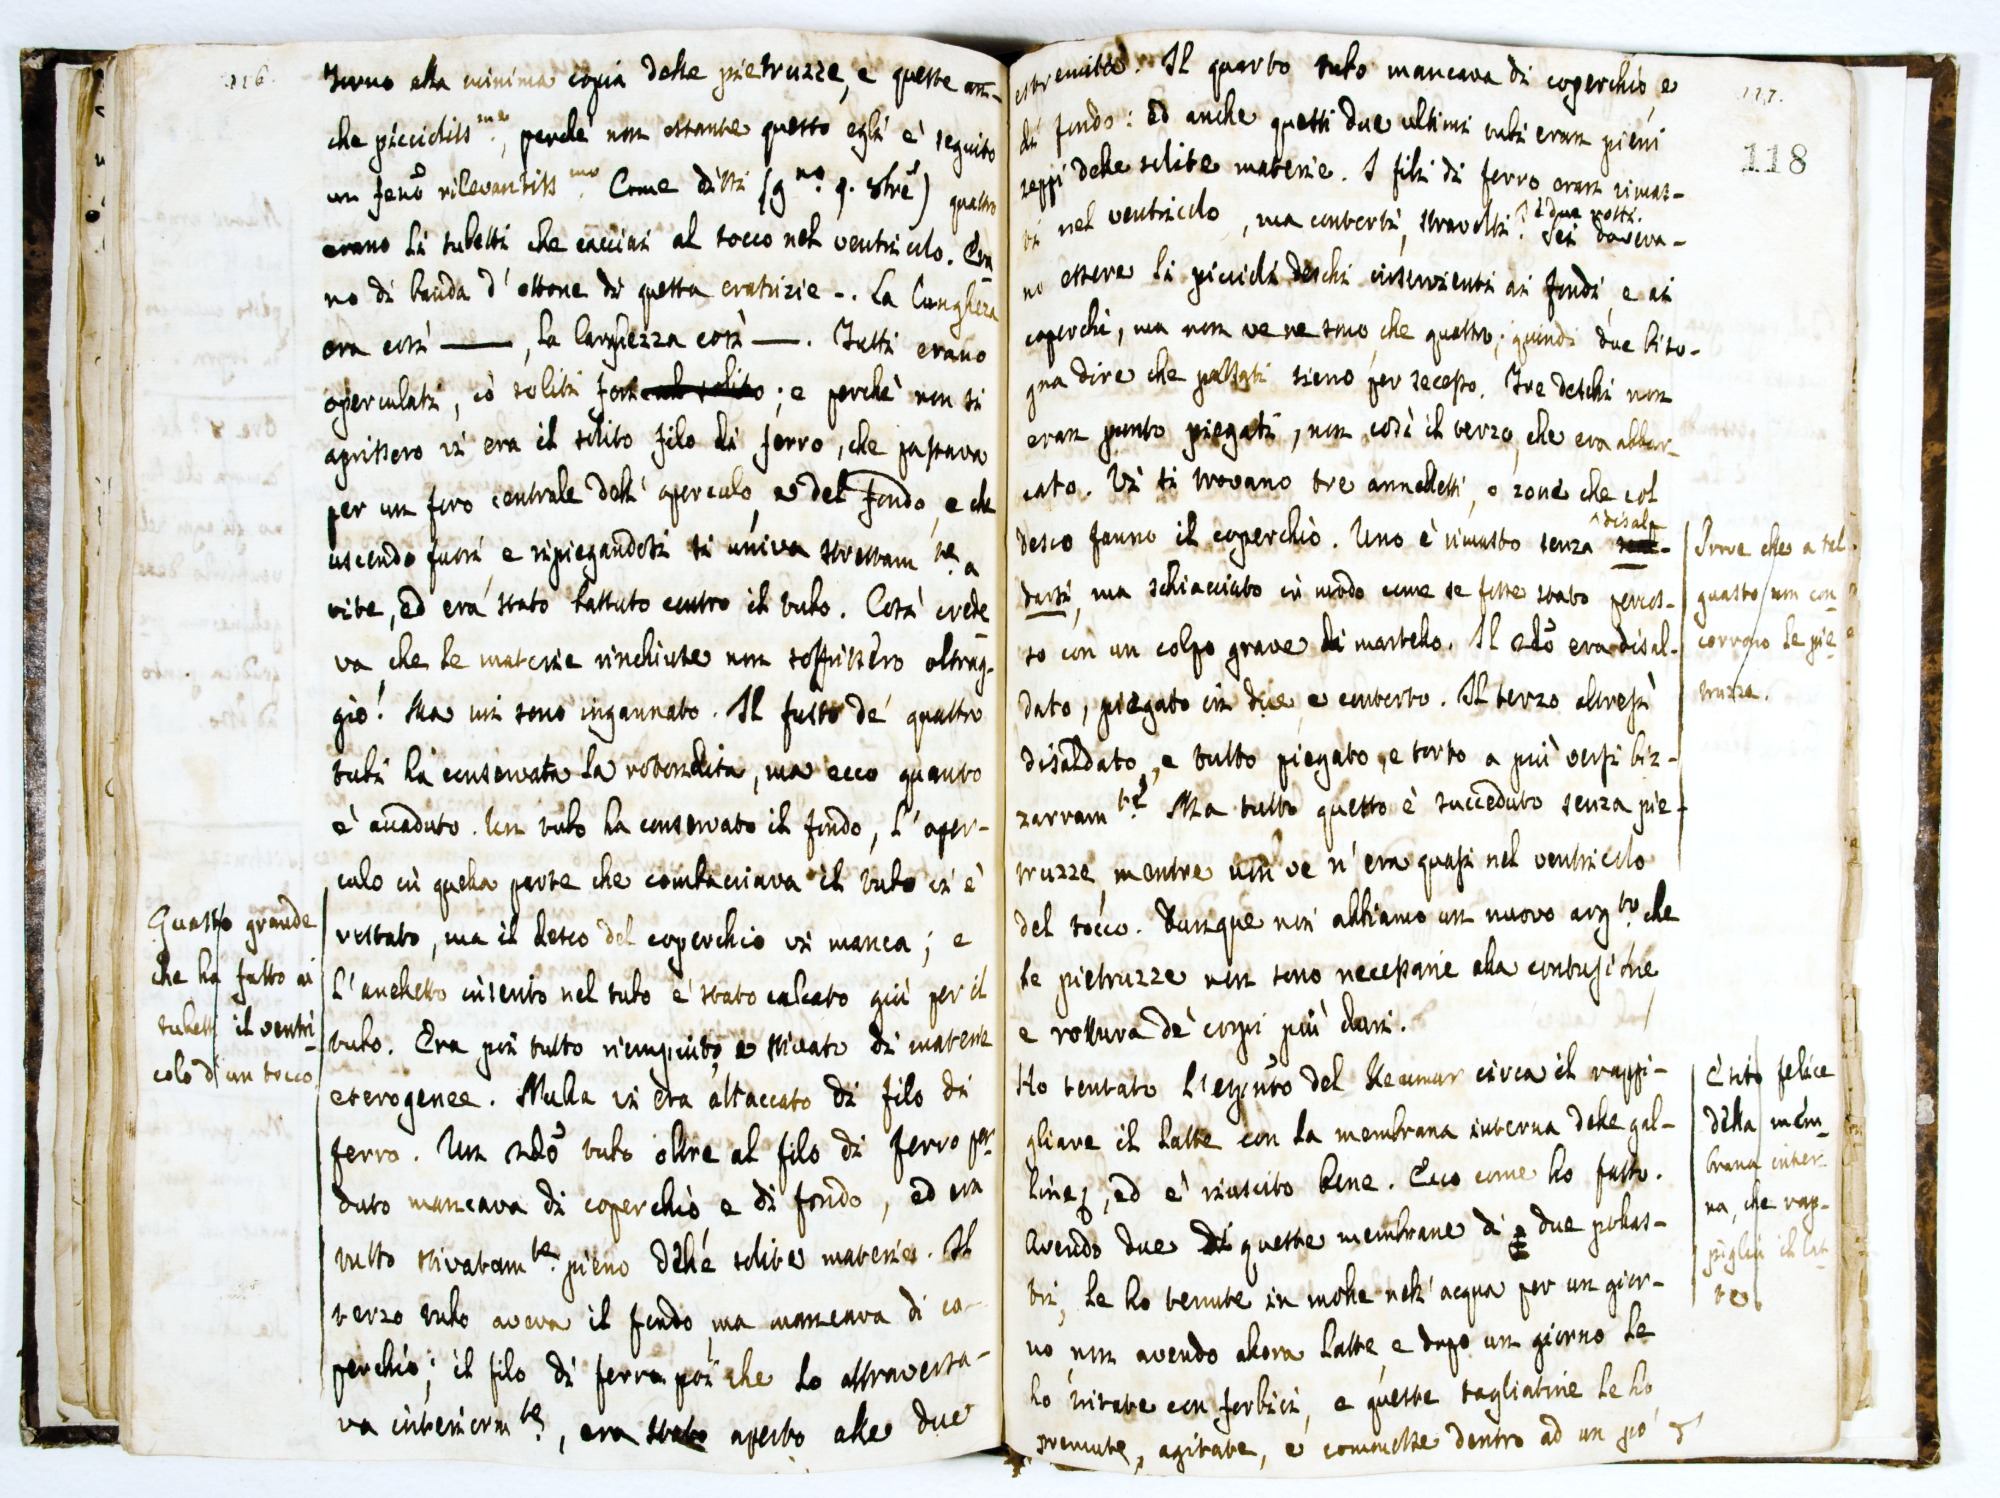 116.
turno alla minima copia delle pietruzze, e queste an-
che picciolis.me, perchè non ostante questo egli è seguito
un fenõ rilevantiss.mo Come dissi quattro
erano li tubetti che cacciai al tocco nel ventriculo. Era
no di banda d'ottone di questa cratizie -. La lunghezza
era così —, la larghezza così —. Tutti erano
operculati, co' soliti fori; e perchè non si
aprissero vi era il solito filo di ferro, che passava
per un foro centrale dell' operculo, e del fondo, e che
uscendo fuori e ripiegandosi si univa strettam.te a
vite, ed era stato battuto contro il tubo. Così crede
va, che le materie rinchiuse non soffrissero oltrag-
gio! Ma mi sono ingannato. Il fusto de' quattro
tubi ha conservata la rotondità, ma ecco quanto
è accaduto. Un tubo ha conservato il fondo, l' oper-
culo in quella parte che combaciava il tubo vi è
restato, ma il desco del coperchio vi manca; e
l'anelletto inserito nel tubo è stato calcato giù per il
tubo. Era poi tutto riempiuto, e stivato di materie
eterogenee. Nulla vi era attaccato di filo di
ferro. Un 2do tubo oltre al filo di ferro per
duto mancava di coperchio e di fondo, ed era
tutto stivatam.te pieno delle solite materie. Il
terzo tubo aveva il fondo, ma mancava di co-
perchio; il filo di ferro poi che lo attraversa-
va interiorm.te, era stato aperto alle due
Guasto grande
che ha fatto ai
tubetti il ventri
colo di un tocco
117.
118
estremità. Il quarto tubo mancava di coperchio e
di fondo: ed anche questi due ultimi tubi eran pieni
zeppi delle solite materie. I fili di ferro eran rimas-
ti nel ventricolo, ma contorti, stravolti, e due rotti. Sei doveva-
no essere li piccioli deschi inservienti ai fondi, e ai
coperchi, ma non ve ne sono che quattro; quindi due biso-
gna dire che passati sieno per secesso. Tre deschi non
eran punto piegati, non così il terzo, che era abbar-
cato. Vi si trovano tre annelletti, o zone che col
desco fanno il coperchio. Uno è rimasto senza disal-
darsi, ma schiacciato in modo come se fosse stato percos-
so con un colpo grave di martello. Il 2do era disal-
dato, piegato in due, e contorto. Il terzo altresì
disaldato, e tutto piegato, e torto a più versi biz-
zarram.te Ma tutto questo è succeduto senza pie-
truzze, mentre non ve n' era quasi nel ventricolo
del tocco. Dunque noi abbiamo un nuovo arg.to che
le pietruzze non sono necessarie alla contusione
e rottura de' corpi più duri.
Ho tentato l'esp.nto del Reaumur circa il rappi-
gliare il latte con la membrana interna delle gal-
line, ed è riuscito bene. Ecco come ho fatto.
Avendo due di queste membrane di due pollas-
tri, le ho tenute in molle nell' acqua per un gior-
no non avendo allora latte, e dopo un giorno le
ho tritate con forbici, e queste tagliature le ho
premute, agitate, e commosse dentro ad un po' d'
Prove che a tal
guasto non con
corrono le pie
truzze.
Esito felice
della mem
brana inter
na, che rap-
piglia il lat
te.